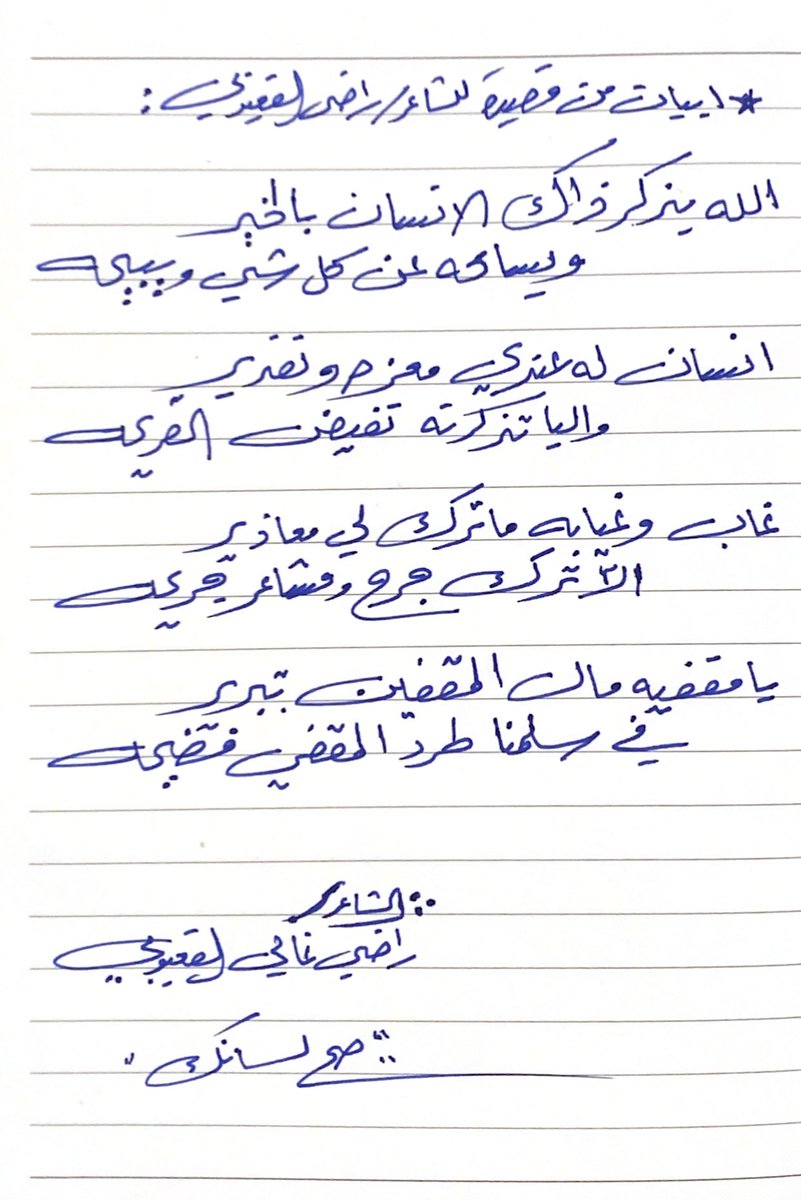 * ابيات من قصيدة للشاعر/ راضي القعبوبي :
الله يذكر ذاك الانسان بالخير
ويسامحه عن كل شي ويبيحه
انسان له عندي معزه وتقدير
واليا تذكرته تفيض القريحه
غاب وغيابه ماترك لي معاذير
الا ترك جرح ومشاعر جريحه
يا مقفيه مال المقفين تبرير
في سلمنا طرد المقفي فضيحه
الشاعر
راضي غالي القعبوبي
صح لسانك